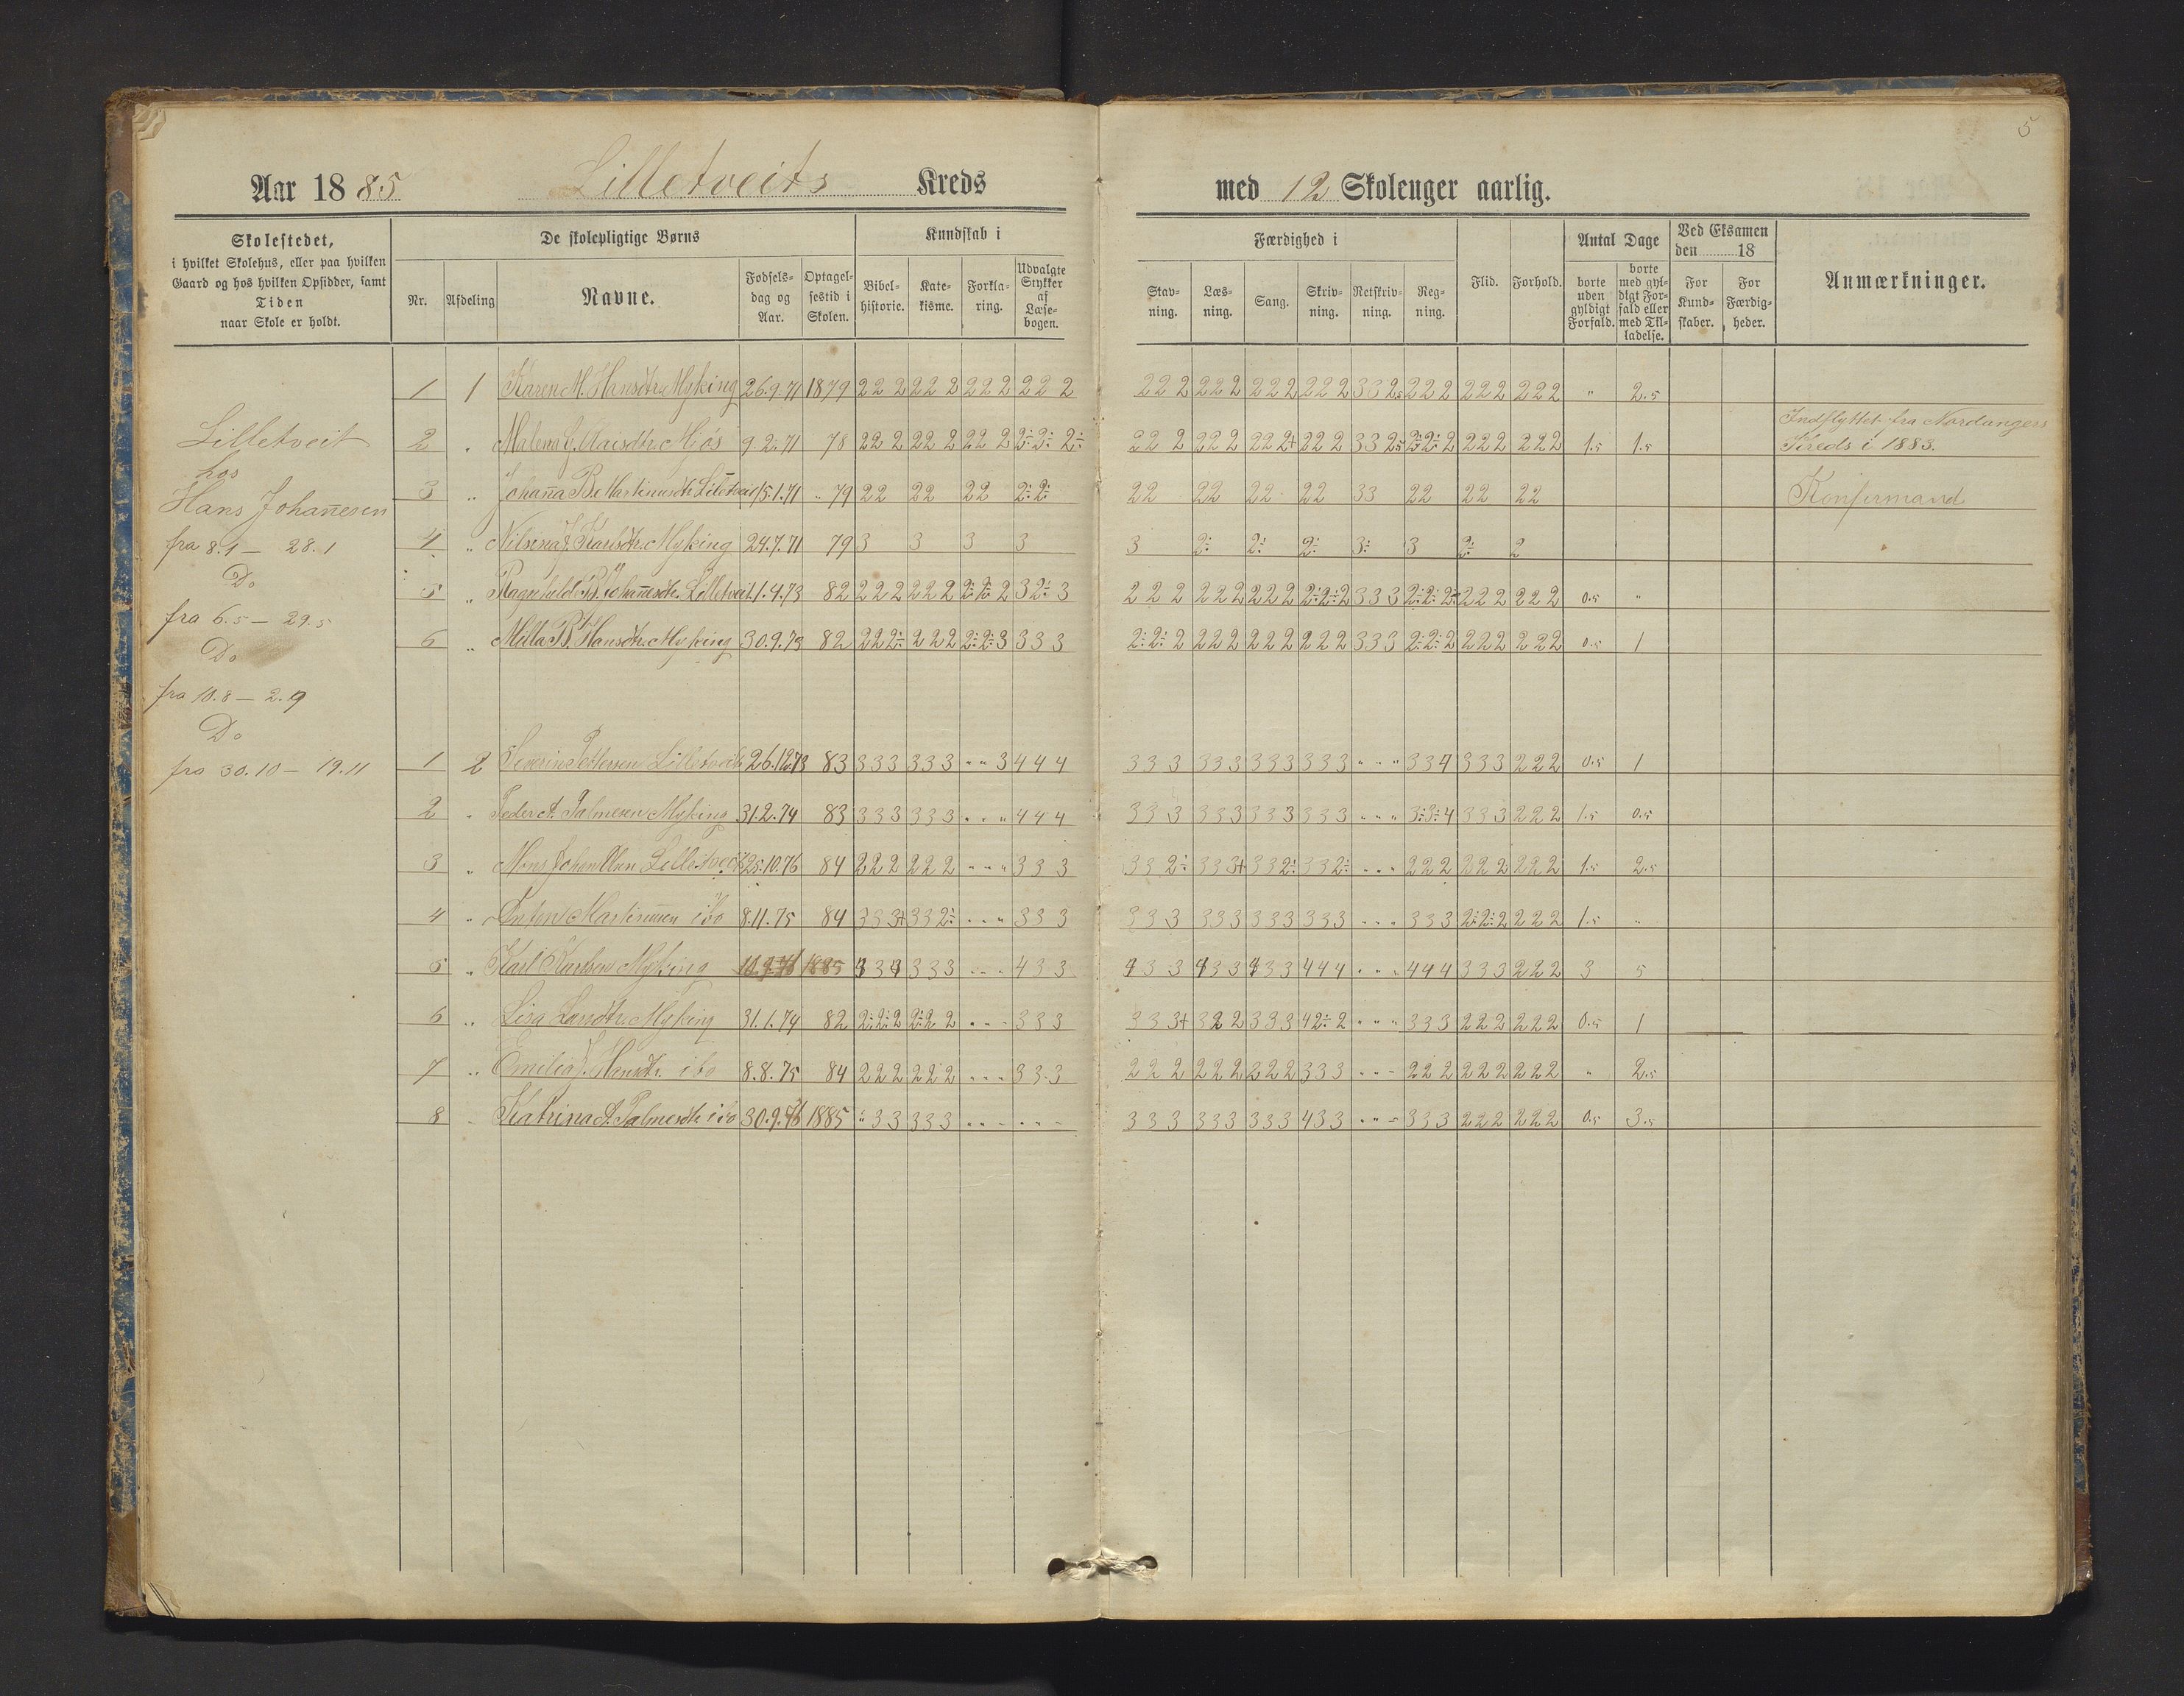 5
Aar 1885 Lilletveits Kreds med 12 Skolenger aarlig.
Skolestedet,
i hvilket Skolehus, eller paa hvilken
Gaard og hos hvilken Opsidder, samt
Tiden
naar Skole er holdt.
De skolepligtige Børns
Nr. Afdeling Navne. Fødsels-dag og Aar. Optagel-sestid i Skolen.
Kundskab i
Bibel-historie. Kate-kisme. Forkla-ring. Udvalgte Stykker af Læse-bogen.
Færdighed i
Stav-ning. Læs-ning. Sang. Skriv-ning. Retskriv-ning. Reg-ning.
Flid. Forhold.
Antal Dage
borte uden gyldigt Forfald. borte med gyl-digt For-fald eller med Til-ladelse.
Ved Eksamen
den 18
For Kund-skaber. For Færdig-heder.
Anmærkninger.
Lilletveit
hos
Hans Johannesen
fra 8.1 — 28.1
Do
fra 6.5 — 29.5
Do
fra 10.8 — 2.9
Do
fra 30.10 — 19.11
1 1 Karen M. Hansdtr. Myking 26.9.71 1879 222 222 222 222 222 222 222 222 332.5 222 222 222 " 2.5
2 " Malena G. Mjøs 9.2.71 78 222 222 222 2÷2÷2÷ 222 222 222+ 222 332.5 222 222 1.5 1.5 Indflyttet fra Nordangers
Kreds i 1883.
3 " Johanna B. Martinusdtr. Lilletveit 15.1.71 " 79 22 22 22 2÷2÷ 22 22 22 22 33 22 22 22 Konfirmand
4 " Nilsina J. Karlsdtr. Myking 24.7.71 79 3 3 3 3 3 2÷ 2÷ 2÷ 3÷ 3 2÷ 2
5 " Ragnhild B. Johannesdtr. Lilletveit 1.4.73 82 222 222 2÷2÷2 32÷3 222 222 222 2÷2÷2 333 2÷2÷2÷ 222 222 0.5 "
6 " Milla B. Hansdtr. Myking 30.9.73 82 222÷ 222 2÷2÷3 333 2÷2÷2 222 222 222 333 2÷2÷2 222 222 0.5 1
1 2 Severin Pettersen Lilletveit 26.12.73 83 333 333 " " 3 444 333 333 333 333 " " " 334 333 222 0.5 1
2 " Peder A. Palmesen Myking 31.2.74 83 333 333 " " " 444 333 333 333 333 " " " 3÷3÷4 333 222 1.5 0.5
3 " Mons Johan Olsen Lilletveit 25.10.76 84 222 222 " " " 333 332÷ 333+ 332÷ 332÷ " " " 222 222 222 1.5 2.5
4 " Anton Martinusen ibo 8.11.75 84 333+ 332÷ " " " 333 333 333 333 333 " " " 333 2÷2÷2 222 1.5 "
5 " Karl Karlsen Myking 10.9.76 1885 333 " " " 433 433 433 433 444 " " " 444 333 222 3 5
6 " Lisa Larsdtr. Myking 31.1.74 82 2÷2÷2 2÷22 " " " 333 333+ 322 333 42÷2 " " " 333 222 222 0.5 1
7 " Emilia J. Hansdtr. ibo 8.8.75 84 222 222 " " " 333 222 222 222 333 " " " 222 222 222 " 2.5
8 " Katrina A. Palmesdtr. ibo 30.9.76 1885 " 33 333 " " " " " " 333 333 333 433 " " " 333 222 222 0.5 3.5